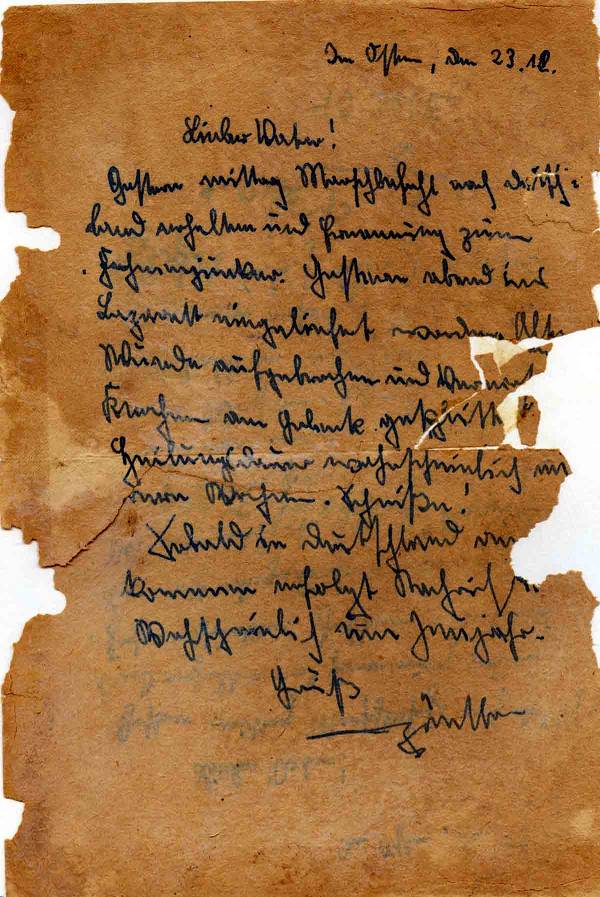 Im Osten, den 23.12.
Lieber Vater!
Gestern mittag Marschbefehl nach Deutsch-
land erhalten und Ernennung zum
Fahnenjunker. Gestern abend ins
Lazarett eingeliefert worden. Alte
Wunde aufgebrochen und
Knochen am Gelenk gesplittert
Heilungsdauer wahrscheinlich
Wochen. Scheiße!
Sobald in Deutschland an
kommen erfolgt Nachricht
Wahscheinlich um Neujahr.
Gruß
Günther